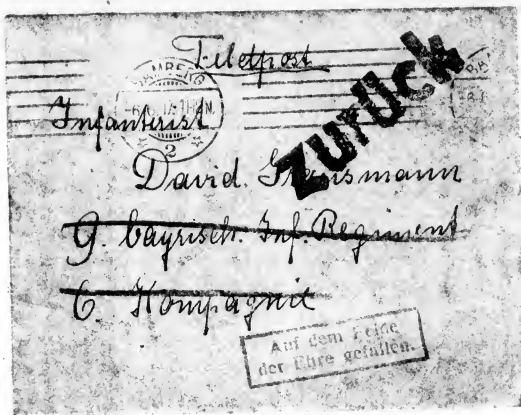 Feldpost
BAMBERG
2
Zurück
Infanterist
David
9. bayrisch. Inf. Regiment
6. Kompagnie
Auf dem Felde
der Ehre gefallen.